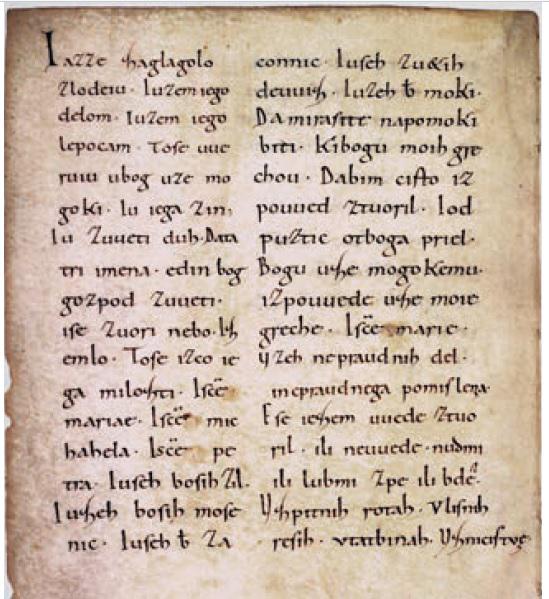 Iazze zaglagolo
zlodeiu · Iuzem iego
delom · Iuzem iego
lepocam · Tose uue
ruiu ubog uze mo
goki · Iu iega zin ·
Iu zuueti duh · Data
tri imena · edin bog
gozpod zuueti ·
ise zuori nebo · Iz
emlo · Tose izco ie
ga milozti · Iscē
mariae · Iscē mic
hahela · Iscē pe
tra · Iuseh bosih zil ·
Iuzeh bosih mose
nic · Iuseh b̄ za
connic · Iuseh zu&ih
deuuiz · Iuzeh b̄ moki ·
Damirasite napomoki
biti · Kibogu moih gre
chou · Dabim cisto iz
pouued ztuoril · Iod
puztic otboga priel ·
Bogu uze mogokemu ·
izpouuede uze moie
greche · Iscē marie ·
Uzeh nepraudnih del ·
inepraudnega pomislena ·
Ese iezem uuede ztuo
ril · ili neuuede · nudmi
ili lubmi zpe ili bdē ·
Uzpitnih rotah · Vlisnih
resih · vtatbinah · Uznicistue ·